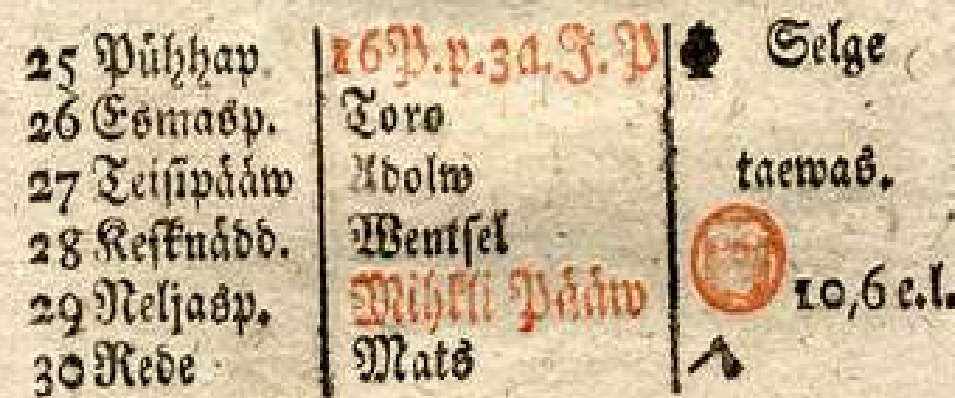 25 Pühhap. 16 P. p. 3 a. J. P Selge
26 Esmasp. Toro
27 Teisipääw Adolw taewas.
28 Kesknädd. Wentsel
29 Neljasp. Mihkli Pääw 10,6 e.l.
30 Rede Mats